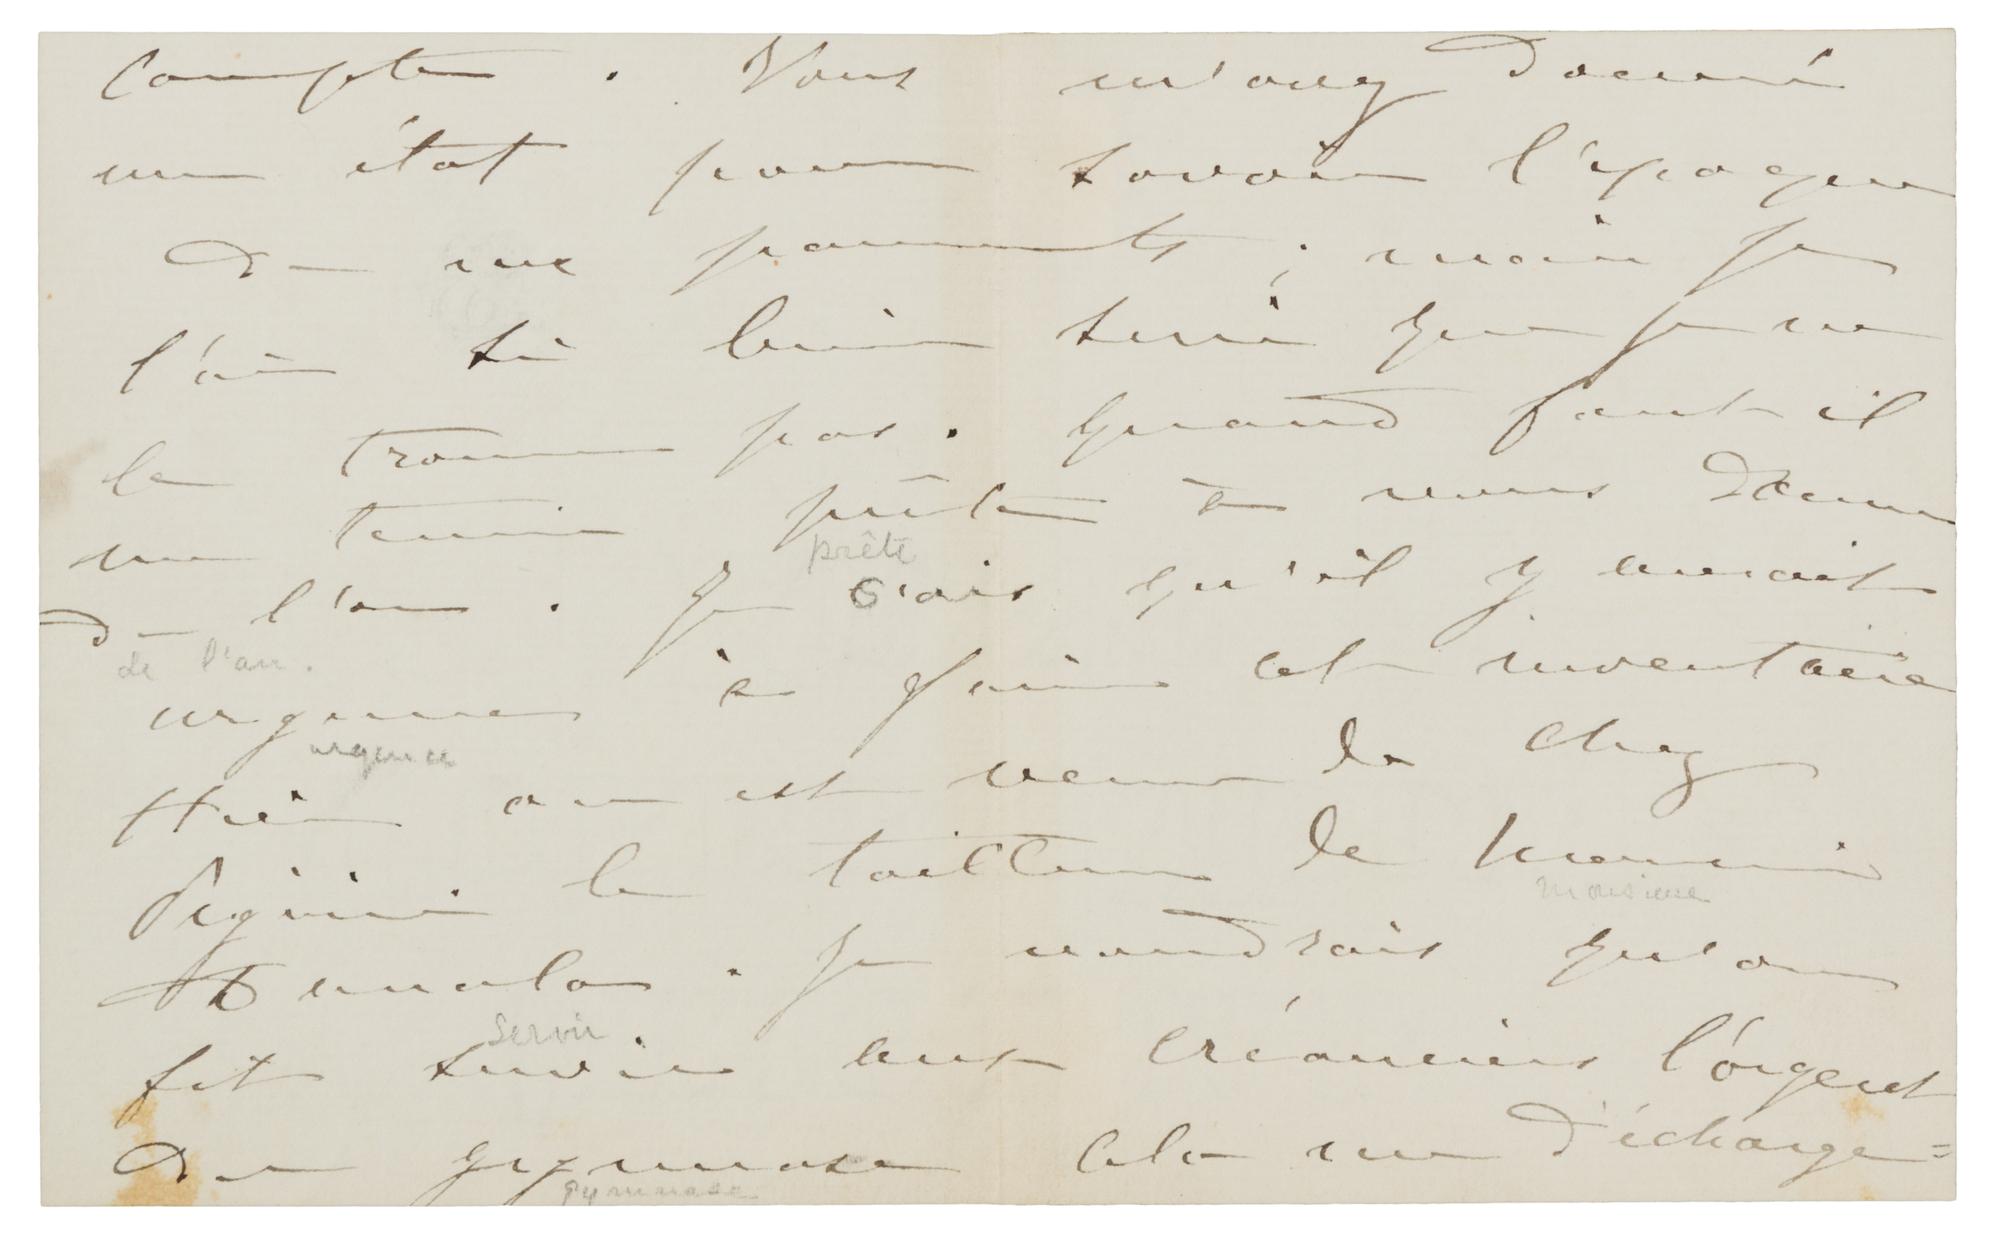 compte . Vous m'avez donné
un état pour savoir l'époque
de mes paiements ; mais je
l'ai si bien serré que je ne
le trouve pas . quand faut il
me tenir prête à vous donner
prête
de l'an . Je sais qu'il y aurait
de l'an .
urgence à faire cet inventaire
urgence
Hier on est venu de chez
le tailleur de monsieur
monsieur
Dumala . Je voudrais qu'on
servir
fit servir aux créanciers l'argent
du gymnase cela me décharge=
gymnase